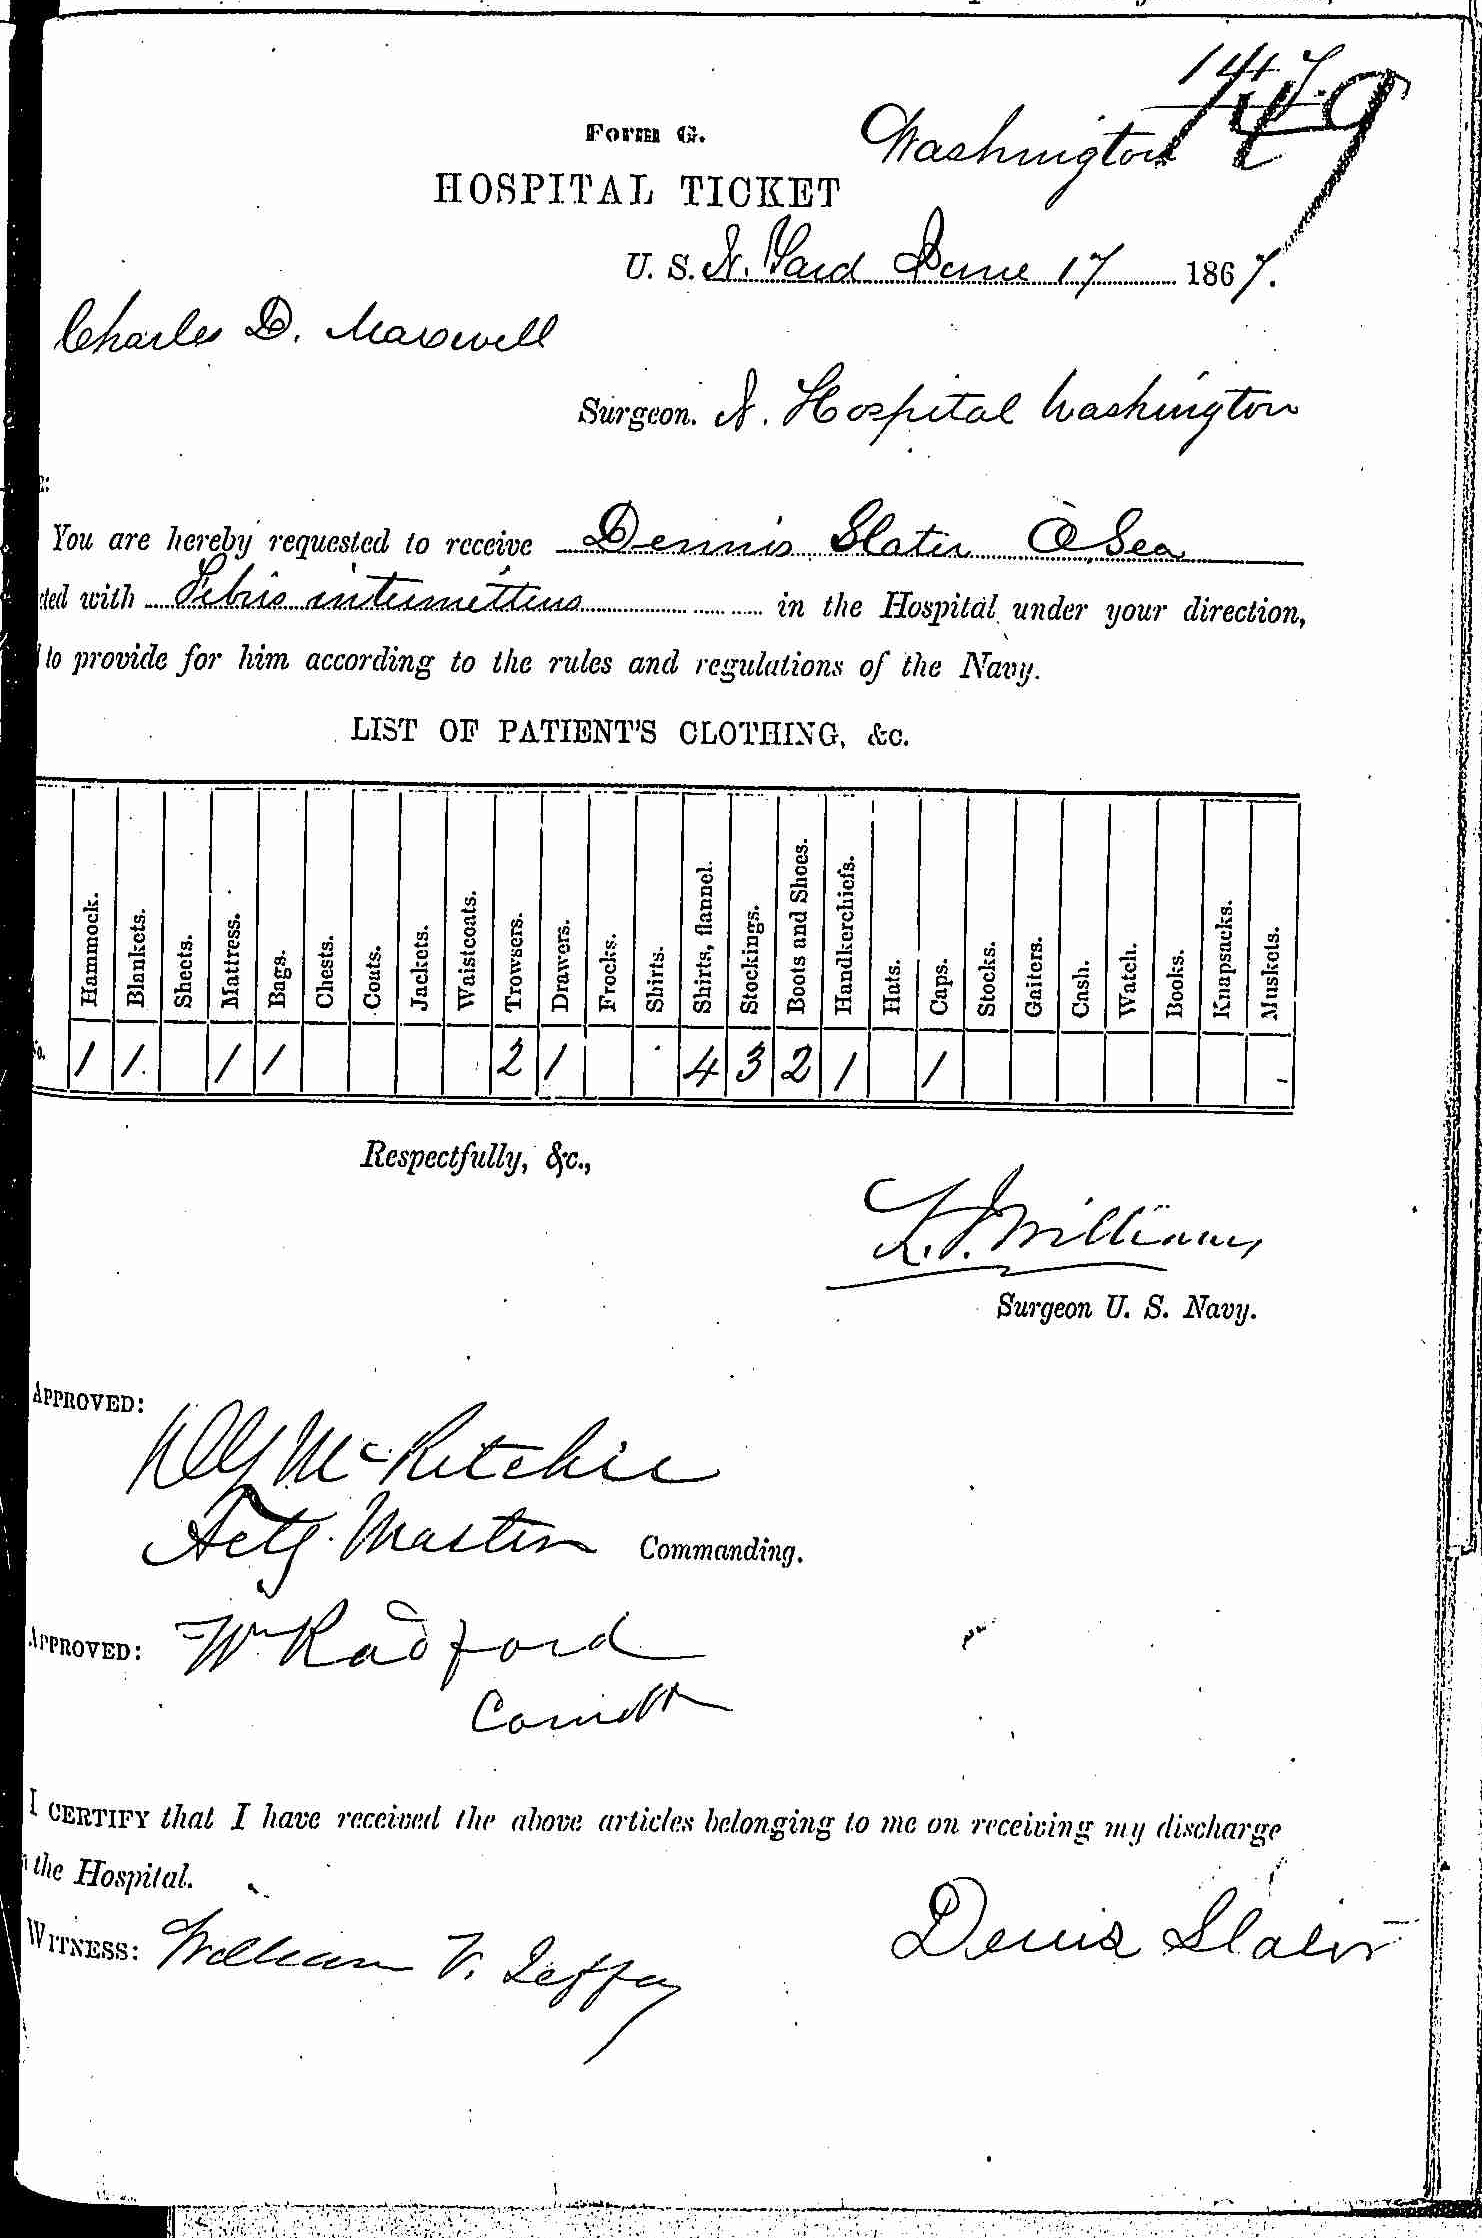 149
Form G.
Washington
HOSPITAL TICKET
U. S. N. Yard June 17 1867.
Charles D. Maxwell
Surgeon. N. Hospital Washington
You are hereby requested to receive Dennis Slater O Sea
ted with Febris intermittens in the Hospital under your direction,
to provide for him according to the rules and regulations of the Navy.
LIST OF PATIENT'S CLOTHING, &c.
Hammock. Blankets. Sheets. Mattress. Bags. Chests. Coats. Jackets. Waistcoats. Trowsers. Drawers. Frocks. Shirts. Shirts, flannel. Stockings. Boots and Shoes. Handkerchiefs. Hats. Caps. Stocks. Gaiters. Cash. Watch. Books. Knapsacks. Muskets.
No. 1 1 1 1 2 1 4 3 2 1 1
Respectfully, &c.,
Williams
Surgeon U. S. Navy.
APPROVED:
McRitchie
Actg. Master Commanding.
APPROVED: Wm Radford
Comdt
I CERTIFY that I have received the above articles belonging to me on receiving my discharge
the Hospital.
WITNESS: William V. Denis Slater